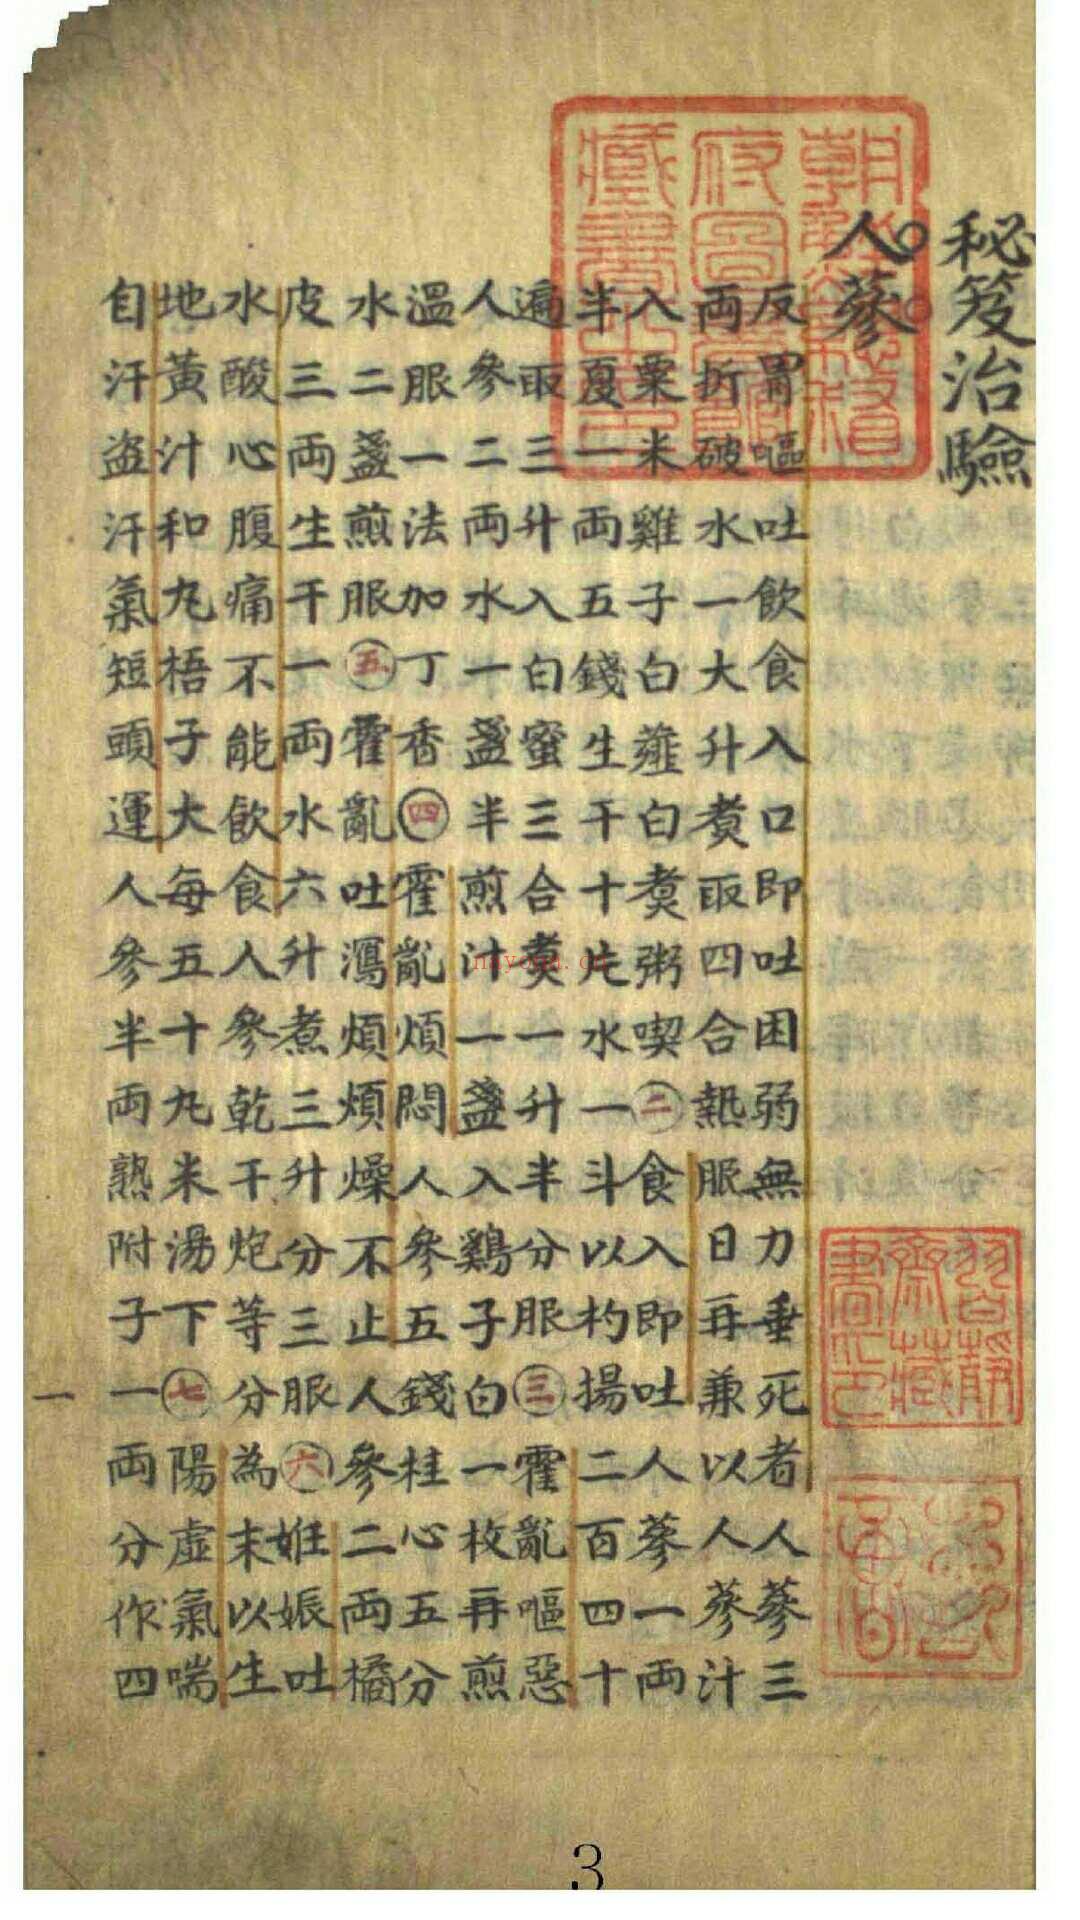 秘笈治驗
人蔘
反胃嘔吐飲食入口即吐困弱無力垂死者人蔘三
両折破水一大升煑取四合熱服日再兼以人蔘汁
入粟米雞子白薤白煑粥喫㊁食入即吐人蔘一両
半夏一両五錢生干十片水一斗以杓揚二百四十
遍取三升入白蜜三合煑一升半分服㊂霍亂嘔惡
人參二両水一盞半煎汁一盞入鷄子白一枚再煎
溫服一法加丁香㊃霍亂煩悶人參五錢桂心五分
水二盞煎服㊄霍亂吐瀉煩煩燥不止人參二両橘
皮三両生干一両水六升煮三升分三服㊅妊娠吐
水酸心腹痛不能飲食人參乾干炮等分為末以生
地黃汁和丸梧子大每五十丸米湯下㊆陽虛氣喘
自汗盜汗氣短頭運人參半両熟附子一両分作四
一
朝鮮總督府圖書館藏書之印
習靜齋藏書之印
nayona.cn
3